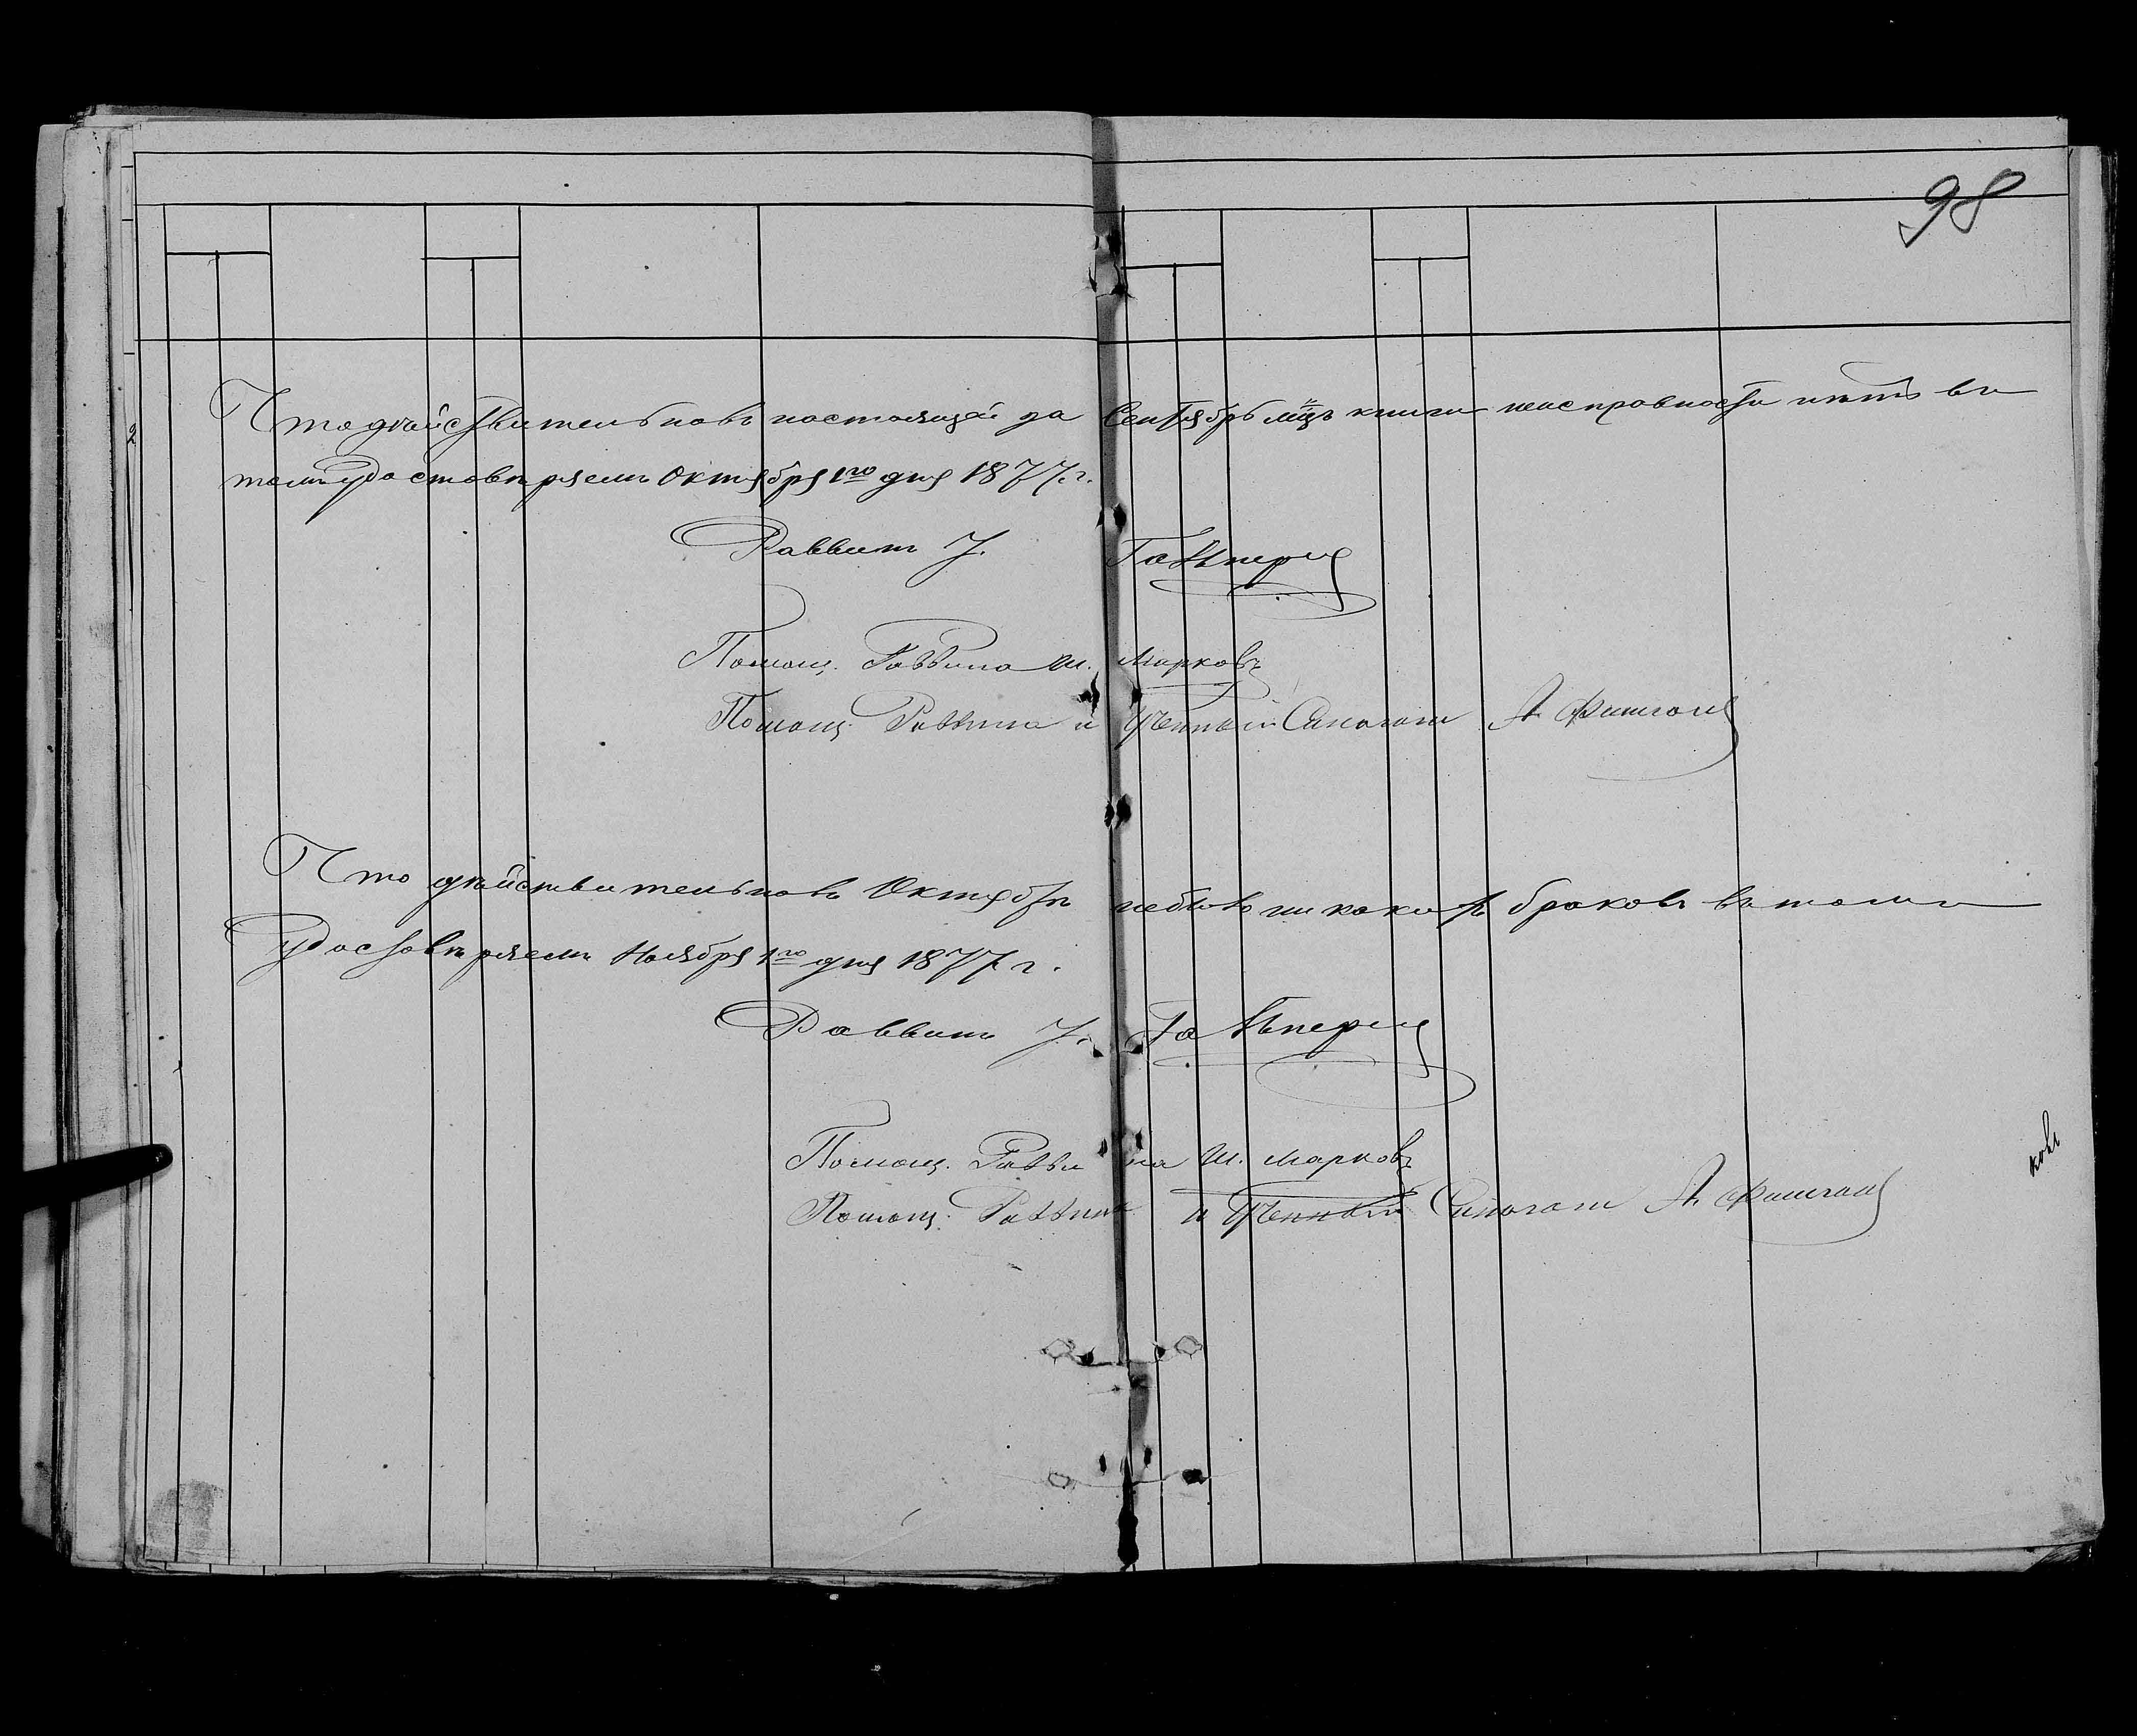 98
Что дѣйствительно въ настоящей за Сентябрь м-цъ книги неисправности нѣтъ въ
томъ удостовѣряемъ Октября 1го дня 1877 г.
Раввинъ І. Гальперн
Помощ. Раввина Ш. Марковъ
Помощ. Раввина и Ученный А. Фишгал
Что дѣйствительно въ Октябрѣ небыло никакихъ браковъ въ томъ
удостовѣряемъ Ноября 1го дня 1877 г.
Раввинъ І. Гальперн
Помощ. Раввина Ш. Марковъ
Помощ. Раввина и Ученный А. Фишгал
ковъ
2